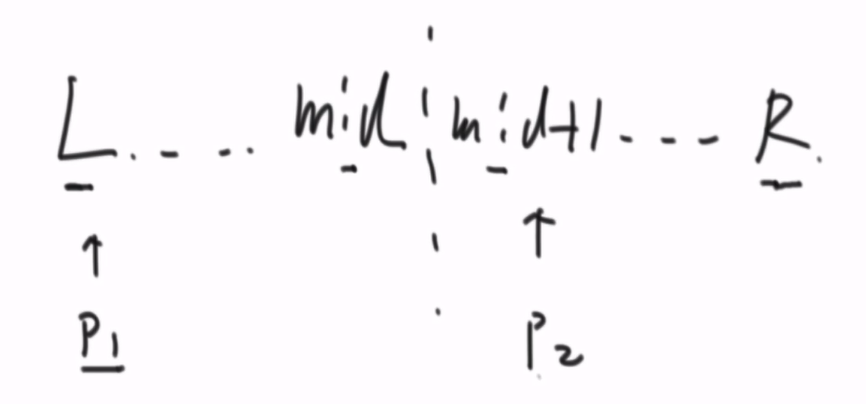 L . . . . mid mid+1 . . . . R
P1 P2